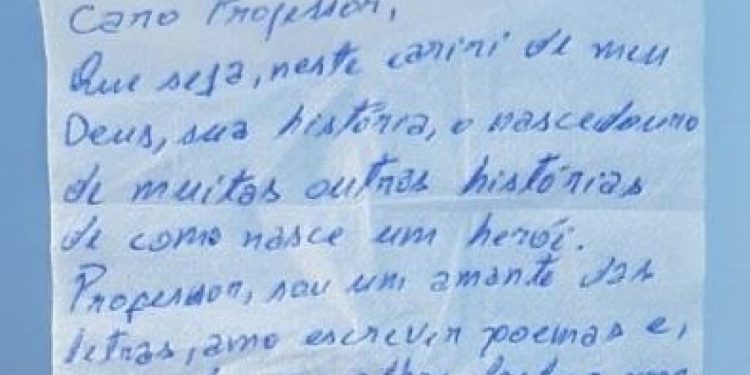 Caro Professor,
Que seja, neste cariri de meu
Deus, sua história, o nascedouro
de muitas outras histórias
de como nasce um herói.
Professor, sou um amante das
letras, amo escrever poemas e,